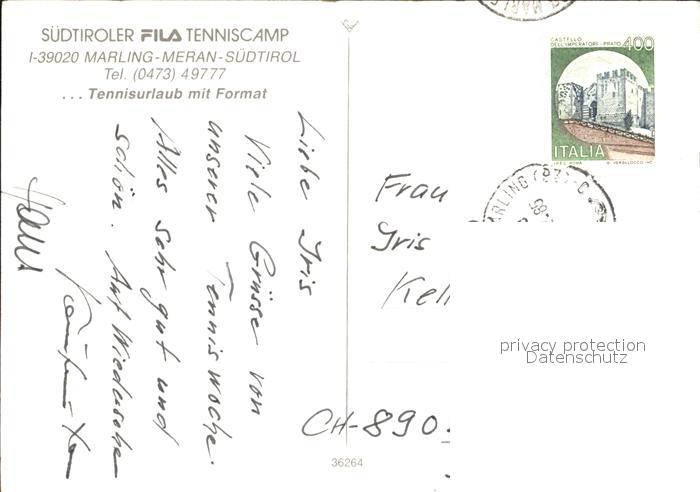 SÜDTIROLER FILA TENNISCAMP
I-39020 MARLING-MERAN-SÜDTIROL
Tel. (0473) 49777
... Tennisurlaub mit Format
Liebe Iris
Viele Grüsse von
unserer Tenniswoche.
Alles sehr gut und
schön. Auf Wiedersehn
36264
CASTELLO
DELL'IMPERATORE-PRATO 400
ITALIA
MARLING (BZ)-C.
Frau
Iris
Kell
CH-890
privacy protection
Datenschutz